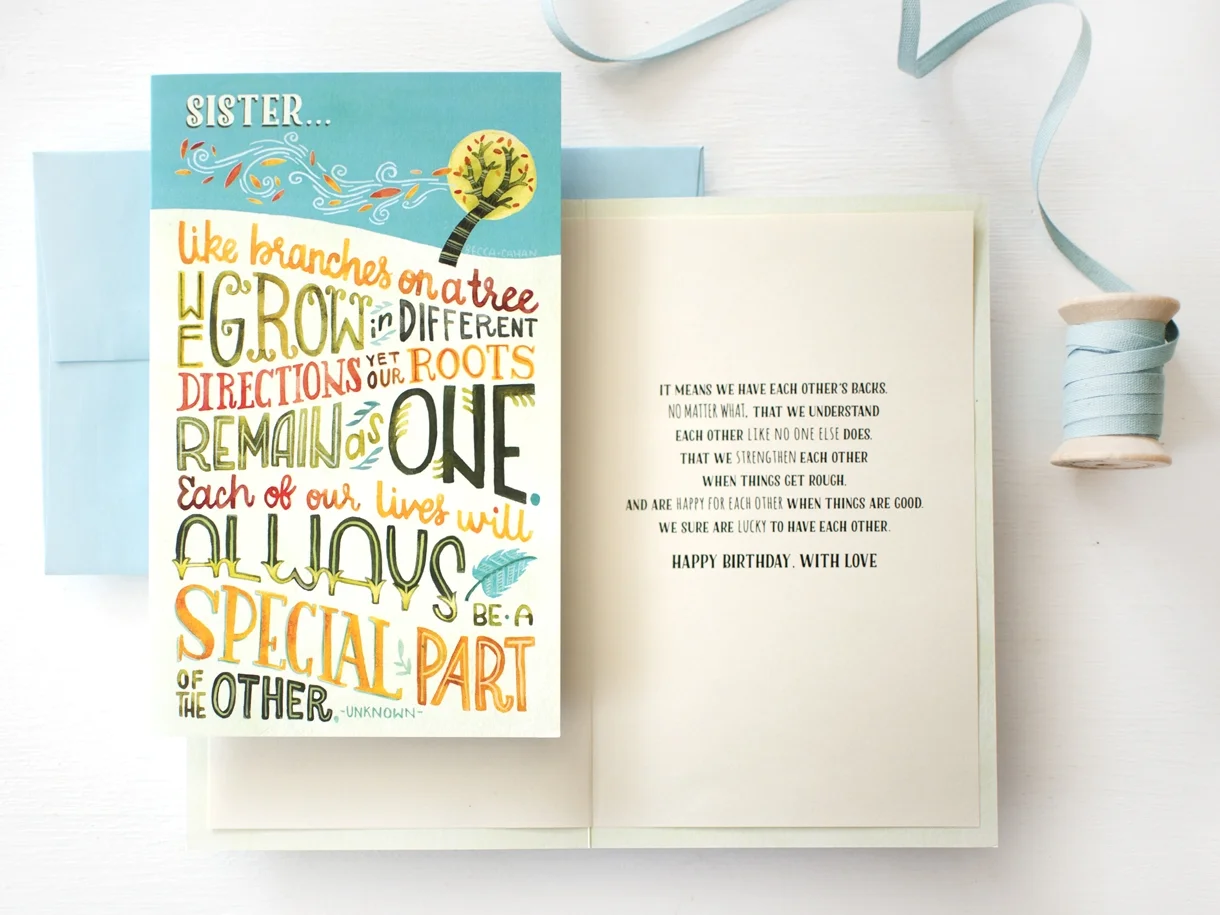 SISTER...
BECCA•CAHAN
like branches on a tree
WE GROW in DIFFERENT
DIRECTIONS YET OUR ROOTS
REMAIN as ONE.
Each of our lives will
ALWAYS BE•A
SPECIAL PART
OF THE OTHER. -UNKNOWN-
IT MEANS WE HAVE EACH OTHER'S BACKS.
NO MATTER WHAT, THAT WE UNDERSTAND
EACH OTHER LIKE NO ONE ELSE DOES.
THAT WE STRENGTHEN EACH OTHER
WHEN THINGS GET ROUGH.
AND ARE HAPPY FOR EACH OTHER WHEN THINGS ARE GOOD.
WE SURE ARE LUCKY TO HAVE EACH OTHER.
HAPPY BIRTHDAY. WITH LOVE